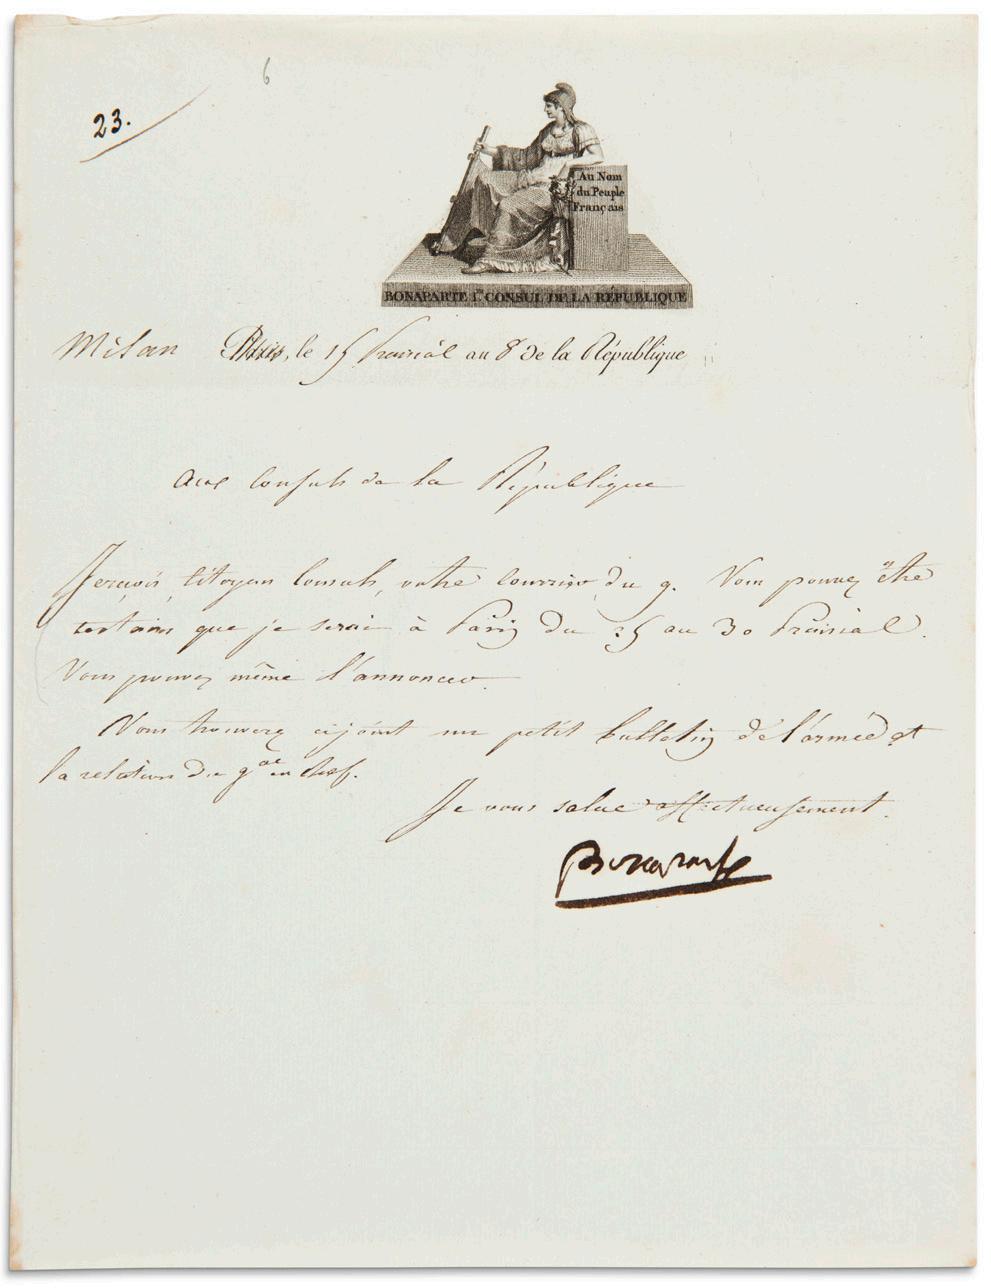 6
23.
Au Nom
du Peuple
Français
BONAPARTE 1er CONSUL DE LA RÉPUBLIQUE
Milan Paris, le 15 Prairial an 8 de la République
Aux Consuls de la République
Je reçois, Citoyens Consuls, votre courrier du 9. Vous pouvez être
certains que je serai à Paris du 25 au 30 Prairial.
Vous pouvez même l'annoncer.
Vous trouverez ci joint un petit bulletin de l'armée et
la relation du gal en chef.
Je vous salue affectueusement.
Bonaparte